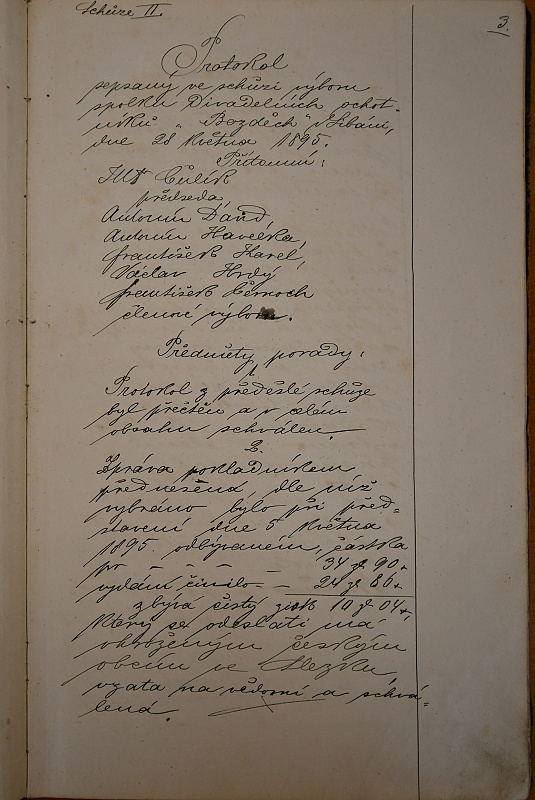 Schůze II.
3.
Protokol
sepsaný ve schůzi výboru
spolku Divadelních ochot-
níků „Bozděch" v Libáni,
dne 28 Května 1895.
Přítomni:
Culík
předseda,
Antonín David,
Antonín Havelka,
František Karel,
Václav Hrdý
František Černoch
členové výboru.
Předměty porady:
1
Protokol z předešlé schůze
byl přečten a v celém
obsahu schválen.
2.
Zpráva pokladníkem
přednešená dle níž
vybráno bylo při před-
stavení dne 5 Května
1895. odbývaném, částka
pr – – – – 34 zl 90 x
vydání činilo – – 24 zl 86 x
zbývá čistý zisk 10 zl 04 x,
který se odeslati má
ohroženým českým
obcím ve Slezku
vzata na vědomí a schvá-
lená.